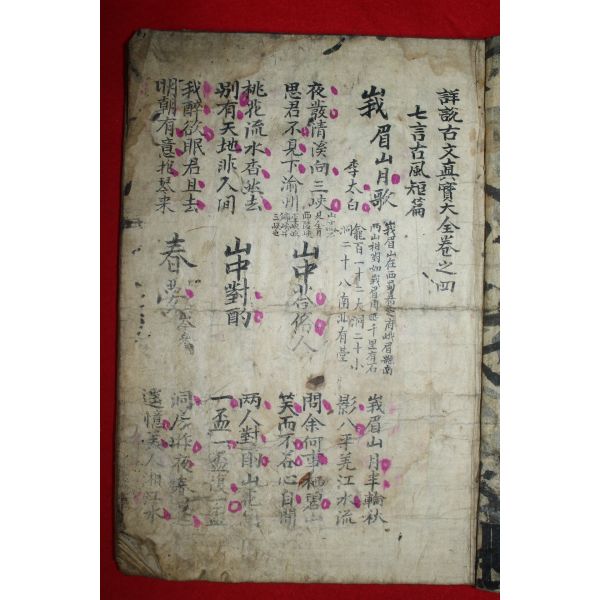 詳說古文眞寶大全卷之四
七言古風短篇
峩眉山月歌
李太白
峩眉山在西蜀嘉定府峨眉縣南
兩山相對如峩眉周匝千里有石
龕百一十二大洞十二小
洞二十八南北有臺
峩眉山月半輪秋
影入平羌江水流
夜發淸溪向三峽
思君不見下渝州
山中答俗人
問余何事栖碧山
笑而不答心自閑
桃花流水杳然去
別有天地非人間
山中對酌
兩人對酌山花開
一盃一盃復一盃
我醉欲眠君且去
明朝有意抱琴來
春夢
岑參
洞房昨夜春
遙憶美人湘江水